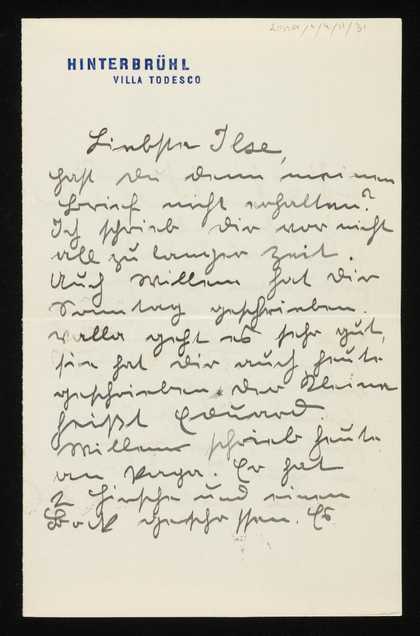 HINTERBRÜHL
VILLA TODESCO
Liebste Ilse,
hast du denn meinen
Brief nicht erhalten?
Ich schrieb dir vor nicht
all zu langer Zeit.
Auch Willem hat dir
Sonntag geschrieben.
Valla geht es sehr gut,
sie hat dir auch heute
geschrieben. Der Kleine
heißt Eduard.
Willem schrieb heute
an Papa. Er hat
2 Hirsche und einen
Bock geschossen. Es